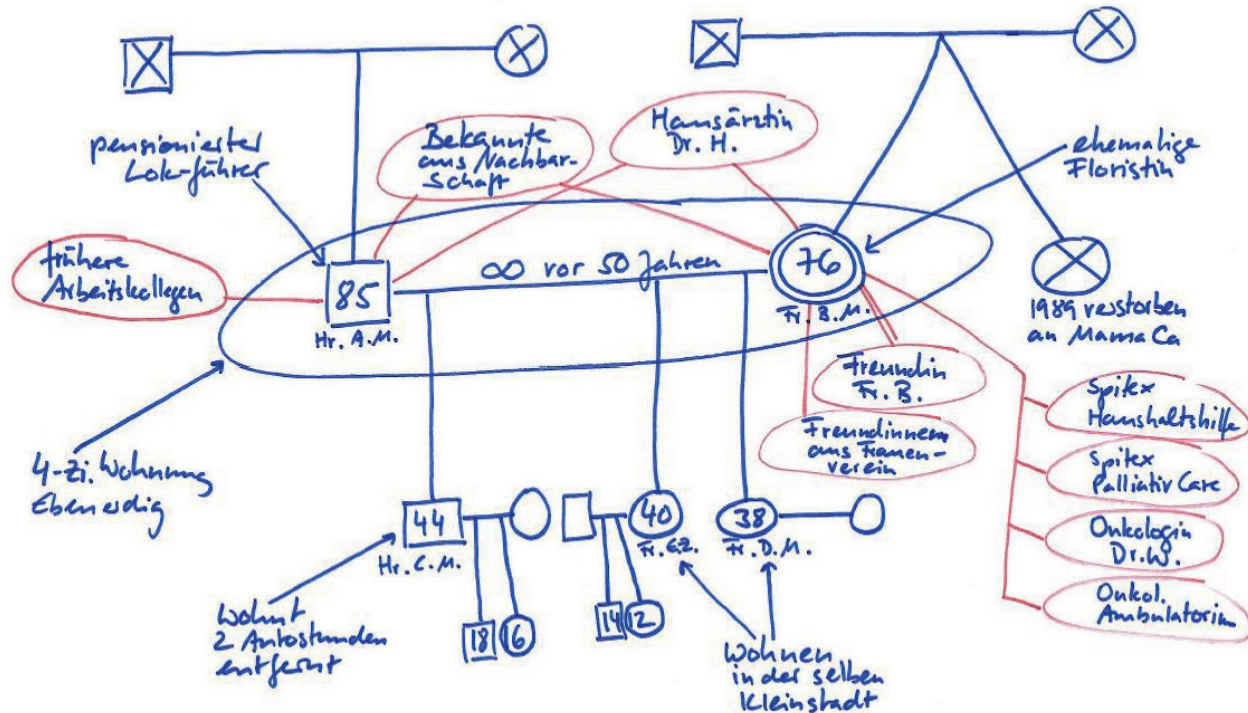 pensionierter
Lok-führer
Bekannte
aus Nachbar-
schaft
Hausärztin
Dr. H.
ehemalige
Floristin
frühere
Arbeitskollegen
85
Hr. A.M.
∞ vor 50 Jahren
76
Fr. B.M.
1989 verstorben
an Mama Ca
Freundin
Fr. B.
Freundinnen
aus Frauen-
verein
Spitex
Haushaltshilfe
Spitex
Palliativ Care
Onkologin
Dr. W.
Onkol.
Ambulatorium
4-Zi. Wohnung
Ebenerdig
44
Hr. C.M.
40
Fr. E.Z.
38
Fr. D.M.
18
16
14
12
wohnt
2 Autostunden
entfernt
wohnen
in der selben
Kleinstadt